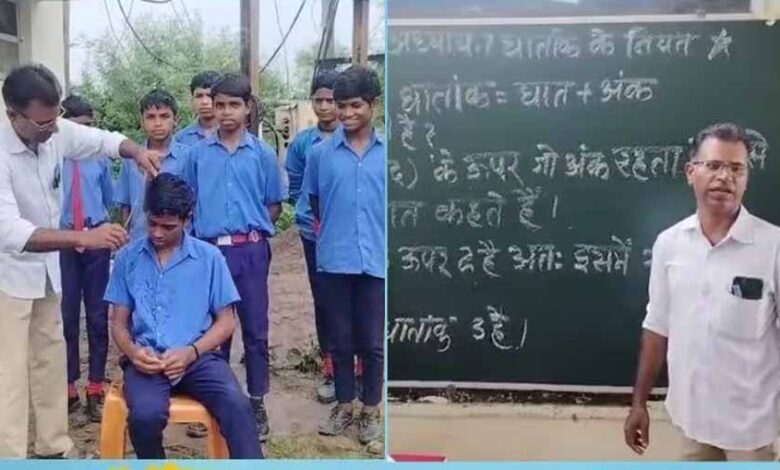 अध्याय: 7 घातांक के नियम
घातांक = घात + अंक
है ?
के ऊपर जो अंक रहता
कहते हैं।
ऊपर द है अतः इसमें
घातांक 3 है।